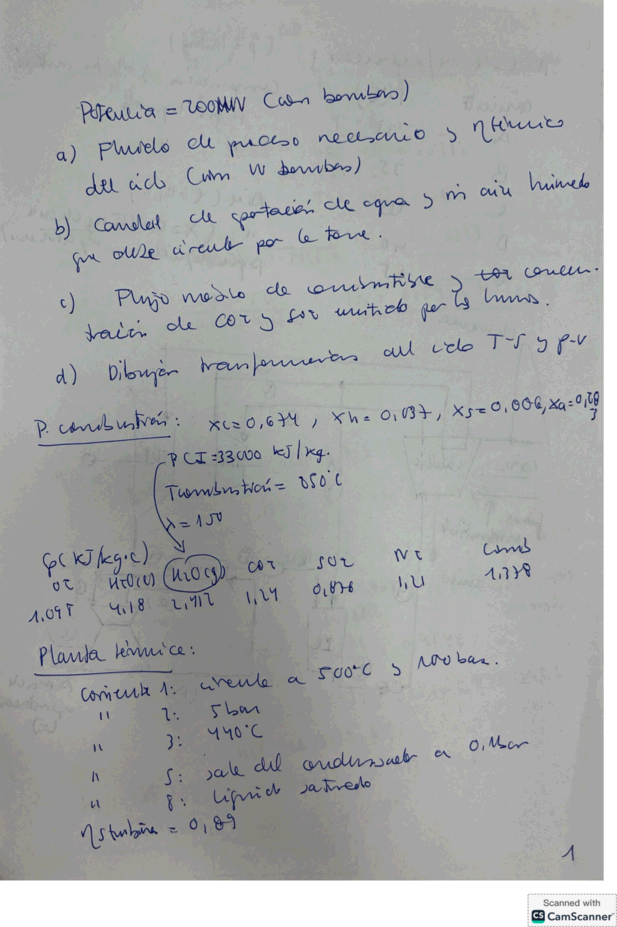 Potencia = 200MW (con bombas)
a) Fluido de proceso necesario y ηtérmico
del ciclo (con W bombas)
b) Caudal de aportación de agua y m aire húmedo
que debe circular por la torre.
c) Flujo másico de combustible y concen-
tración de CO2 y SO2 emitido por los humos.
d) Dibujar transformaciones del ciclo T-S y p-v
P. combustión: xc=0,674, xh=0,037, xs=0,006, xa=0,283
PCI=33000 kJ/kg.
Tcombustión= 850°C
λ=1,50
Cp(kJ/kg·C)
O2 H2O(l) H2O(g) CO2 SO2 N2 Comb
1,095 4,18 2,412 1,24 0,876 1,21 1,378
Planta térmica:
Corriente 1: circula a 500°C y 100bar.
" 2: 5bar
" 3: 440°C
" 5: sale del condensador a 0,1bar
" 8: líquido saturado
ηsturbina = 0,89
1
Scanned with
CS CamScanner